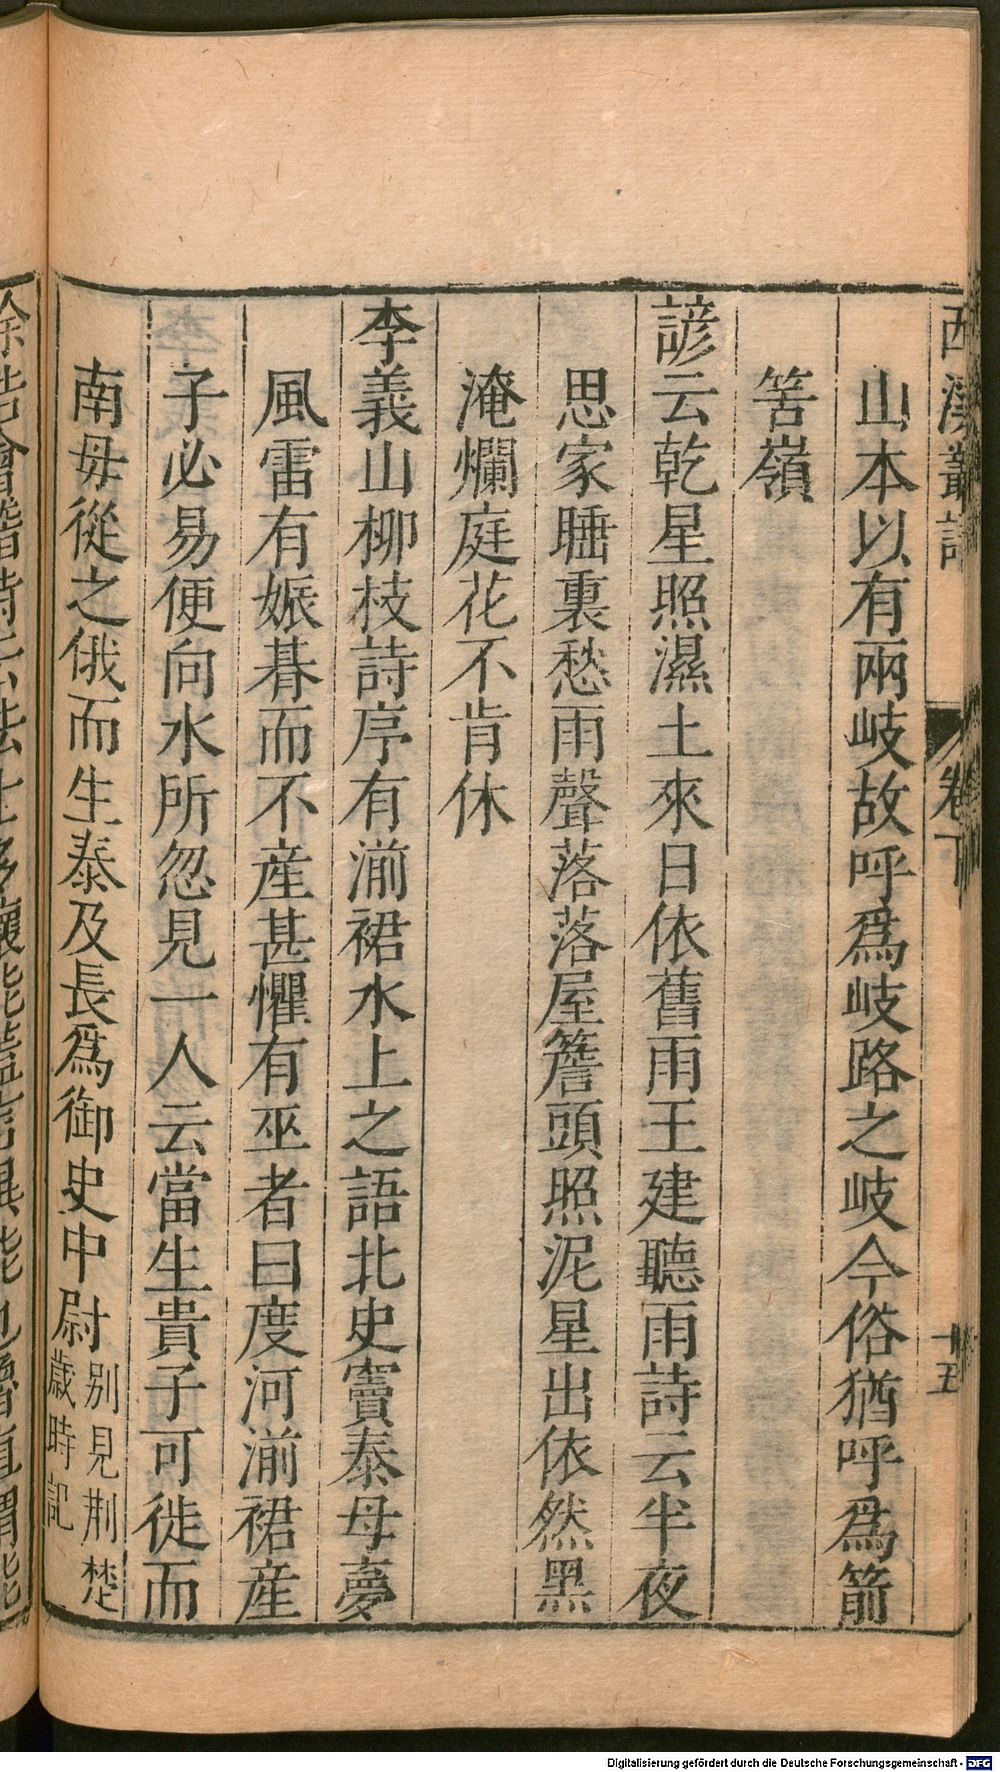 西溪叢語
卷下
十五
山本以有兩岐故呼爲岐路之岐今俗猶呼爲箭
筈嶺
諺云乾星照濕土來日依舊雨王建聽雨詩云半夜
思家睡裏愁雨聲落落屋簷頭照泥星出依然黑
淹爛庭花不肯休
李義山柳枝詩序有湔裙水上之語北史竇泰母夢
風雷有娠朞而不産甚懼有巫者曰度河湔裙産
子必易便向水所忽見一人云當生貴子可徙而
南母從之俄而生泰及長爲御史中尉別見荆楚
歲時記
Digitalisierung gefördert durch die Deutsche Forschungsgemeinschaft - DFG